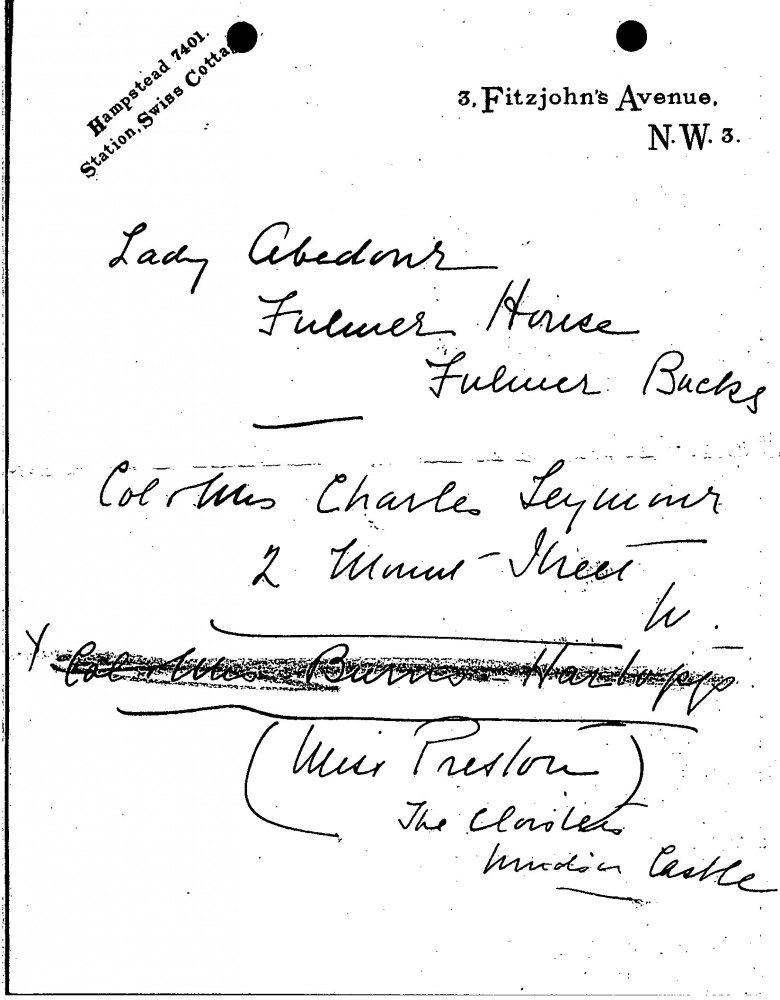 Hampstead 7401.
Station, Swiss Cotta
3, Fitzjohn's Avenue,
N.W. 3.
Lady Abedour
Fulmer House
Fulmer Bucks
Col & Mrs Charles Seymour
2 Mount Street
W.
Y Col & Mrs Burns-Hartopp
(Miss Preston)
The Cloisters
Windsor Castle